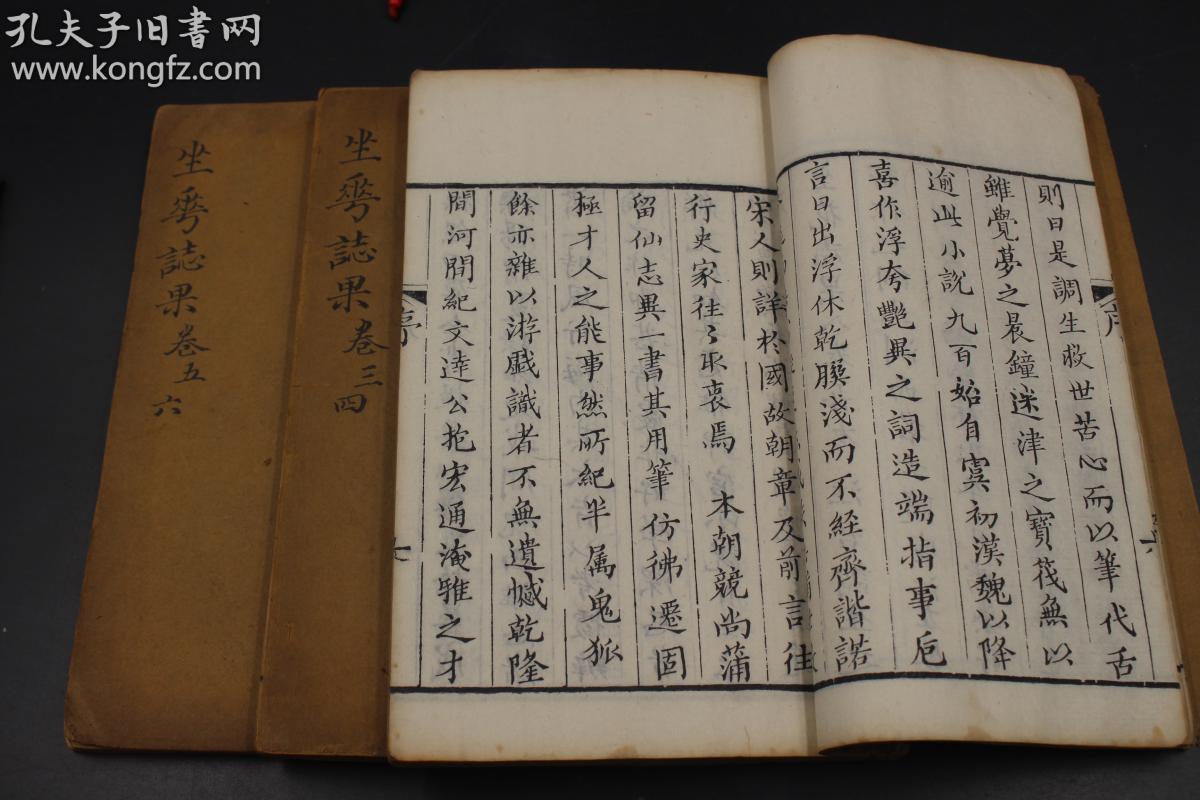 孔夫子旧书网
www.kongfz.com
則曰是調生救世苦心而以筆代舌
雖覺夢之晨鐘迷津之寶筏無以
逾此小說九百始自虞初漢魏以降
喜作浮夸艷異之詞造端指事卮
言日出浮休乾𦠆淺而不経齊諧諾
宋人則詳於國故朝章及前言往
行史家往〻取衷焉 本朝競尚蒲
留仙志異一書其用筆仿彿遷固
極才人之能事然所紀半属鬼狐
餘亦雜以游戲識者不無遺憾乾隆
間河間紀文達公抱宏通淹雅之才
序
七
坐花誌果 卷三四
坐花誌果 卷五六